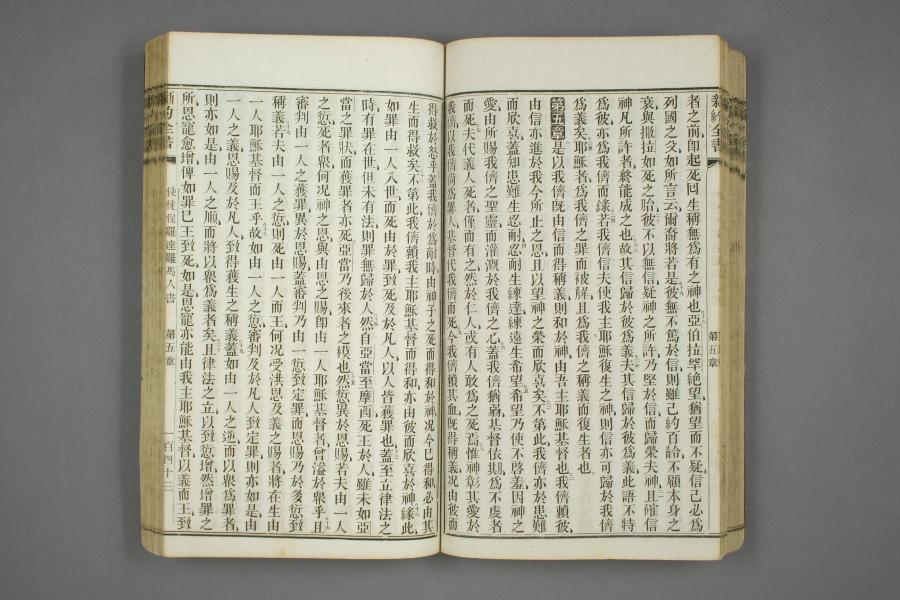 新約全書
第五章
者之前、卽起死回生稱無爲有之神也、亞伯拉罕絕望猶望而不疑、信己必爲
列國之父、如所言云、爾裔將若是、彼無不篤於信、則雖己約百歲、不顧本身之
衰、與撒拉如死之胎、彼不以無信疑神之所許、乃堅於信、而歸榮夫神、且確信
神凡所許者、終能成之也、故其信歸於彼爲義、夫其信歸於彼爲義、此語不特
爲彼、亦爲我儕而錄、若我儕信夫使我主耶穌復生之神、則信亦可歸於我儕
爲義矣、耶穌者爲我儕之罪而被解、且爲我儕之稱義而復生者也、
第五章 是以我儕旣由信而得稱義、則和於神、由吾主耶穌基督也、我儕賴彼、
由信亦進於我今所止之恩、且以望神之榮而欣喜矣、不第此、我儕亦於患難
而欣喜、蓋知患難生忍耐、忍耐生練達、練達生希望、希望乃使不啓羞、因神之
愛、由所賜我儕之聖靈、而灌漑於我儕之心、蓋我儕猶弱、基督依期爲不虔者
而死、夫代義人死者、僅而有之、然於仁人、或有人敢爲之死焉、惟神彰其愛於
我儕、以我儕尙爲罪人、基督代我儕而死、今我儕賴其血、旣得稱義、況由彼而
得救於怒乎、蓋我儕於爲敵時、由神子之死而得和於神、況今已得和、必由其
生而得救矣、不第此、我儕賴我主耶穌基督而得和、亦由彼而欣喜於神、緣此、
如罪由一人入世、而死由於罪、致死及於凡人、以人皆獲罪也、蓋至立律法之
時、有罪在世、但未有法、則罪無歸於人、然自亞當至摩西、死王於人、雖未如亞
當之罪狀而獲罪者亦死、亞當乃後來者之模也、然愆異於恩賜、若夫由一人
之愆、死者衆、何況神之恩、與由恩之賜、卽由一人耶穌基督者、曾溢於衆乎、且
審判由一人之獲罪、異於恩賜、蓋審判乃由一愆致定罪、而恩賜乃於多愆致
稱義、若夫由一人之愆、則死由一人而王、何況受洪恩及義之賜者、將在生由
一人耶穌基督而王乎、故如由一人之愆、審判及於凡人致定罪、則亦如是由
一人之義、恩賜及於凡人致得獲生之稱義、蓋如由一人之逆、而以衆爲罪者、
則亦如是由一人之順、而將以衆爲義者矣、且律法之立、以致愆增、然增罪之
所、恩寵愈增、俾如罪已王致死、如是恩寵亦能由我主耶穌基督、以義而王、致
新約全書
使徒保羅達羅馬人書
第五章
一百四十三